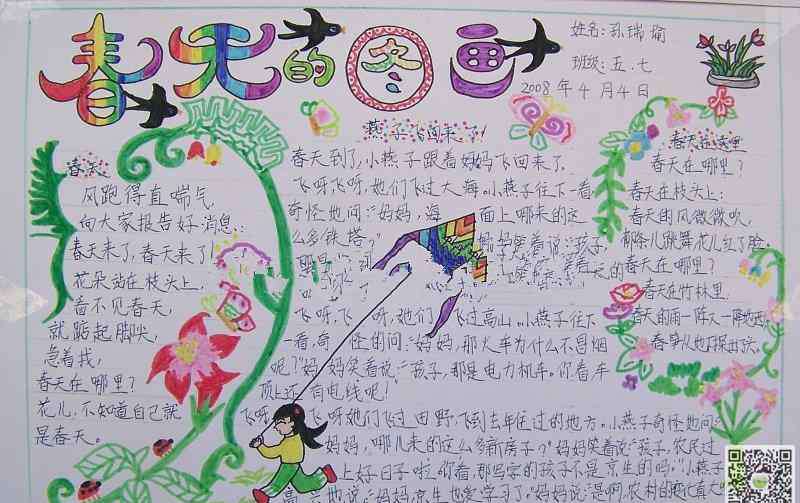 春天的图画
姓名:孙瑞瑜
班级:五.七
2008年4月4日
春天
风跑得直喘气,
向大家报告好消息:
春天来了,春天来了!
花朵站在枝头上,
看不见春天,
就踮起脚尖,
急着找,
春天在哪里?
花儿,不知道自己就
是春天。
燕子飞回来了!
春天到了,小燕子跟着妈妈飞回来了。
飞呀飞呀,她们飞过大海。小燕子往下一看
奇怪地问:“妈妈,海面上哪来的这
么多铁塔?”
妈笑着说:“孩子,
飞呀,飞呀,她们飞过高山。小燕子往下
一看,奇怪的问:“妈妈,那火车为什么不冒烟
呢?”妈妈笑着说:“孩子,那是电力机车。你看车
顶上还有电线呢!
飞呀飞呀她们飞过田野,飞到去年住过的地方。小燕子奇怪地问:“
妈妈,哪儿来的这么多新房子?”妈妈笑着说“孩子,农民过
上好日子啦。你看,那写字的孩子不是京生的吗。”小燕子
高兴地说:“妈妈,京生也爱学习了。”妈妈说
春天在哪里
春天在哪里?
春天在枝头上:
春天的风微微吹,
柳条儿跳舞花儿红了脸。
春天在哪里?
春天在竹林里.
春天的雨一阵又一阵地洒,